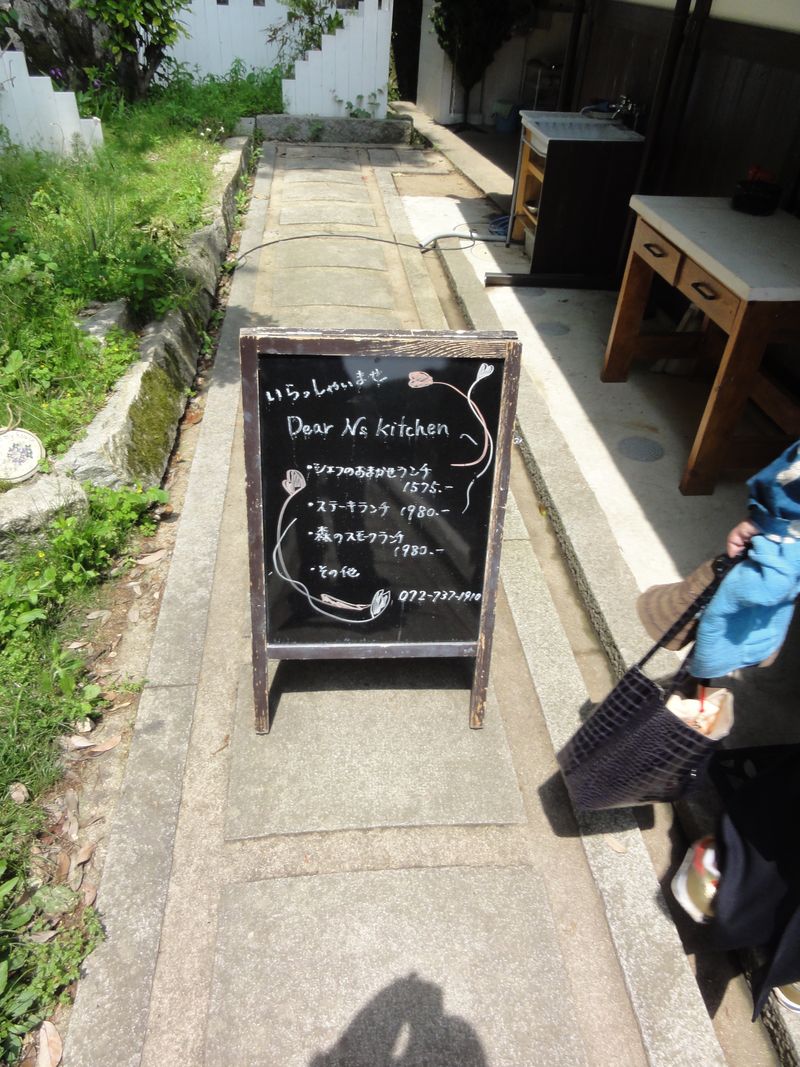 いらっしゃいませ
Dear Ns kitchen
・シェフのおまかせランチ
1575.-
・ステーキランチ 1980.-
・森のスモークランチ
1980.-
・その他
072-737-1910